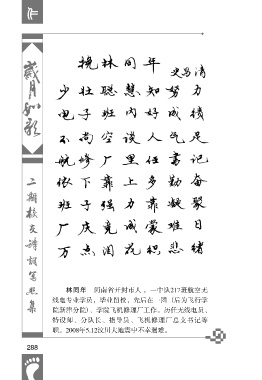 作
岁月如歌
二期校友诗词写照集
挽林同年
史乃清
少壮聪慧知努力
电子班内好成绩
不尚空谈人气足
航修厂里任书记
依下靠上多勤奋
班子强力靠凝聚
厂庆竟成蒙难日
万点泪花积悲绪
林同年 河南省开封市人，一中队217班航空无
线电专业学员，毕业留校，先后在一团（后为飞行学
院新津分院）、学院飞机修理厂工作。历任无线电员、
特设师、分队长、指导员、飞机修理厂总支书记等
职。2008年5.12汶川大地震中不幸遇难。
288